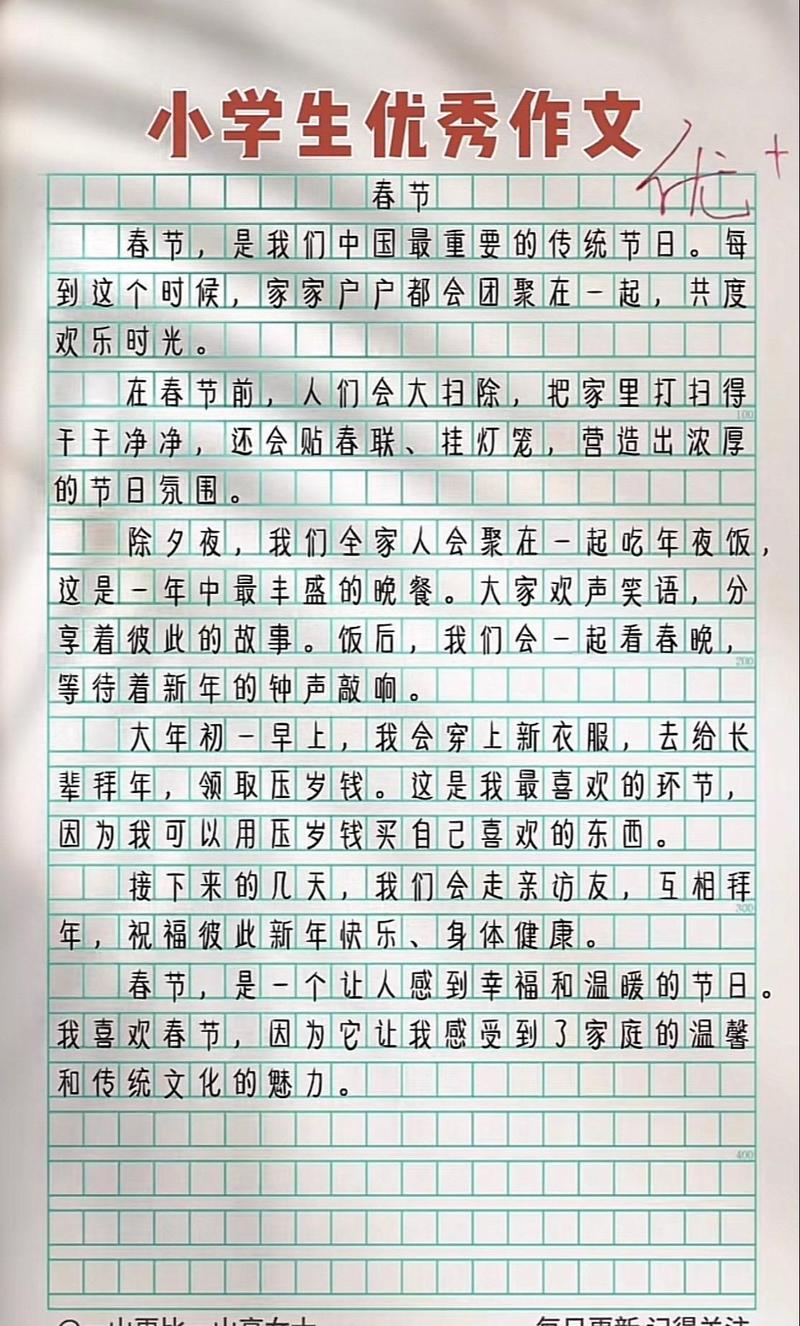 小学生优秀作文
优+
春节
春节，是我们中国最重要的传统节日。每
到这个时候，家家户户都会团聚在一起，共度
欢乐时光。
在春节前，人们会大扫除，把家里打扫得
干干净净，还会贴春联、挂灯笼，营造出浓厚
的节日氛围。
除夕夜，我们全家人会聚在一起吃年夜饭，
这是一年中最丰盛的晚餐。大家欢声笑语，分
享着彼此的故事。饭后，我们会一起看春晚，
等待着新年的钟声敲响。
大年初一早上，我会穿上新衣服，去给长
辈拜年，领取压岁钱。这是我最喜欢的环节，
因为我可以用压岁钱买自己喜欢的东西。
接下来的几天，我们会走亲访友，互相拜
年，祝福彼此新年快乐、身体健康。
春节，是一个让人感到幸福和温暖的节日。
我喜欢春节，因为它让我感受到了家庭的温馨
和传统文化的魅力。
100
200
300
400
每日更新 记得关注